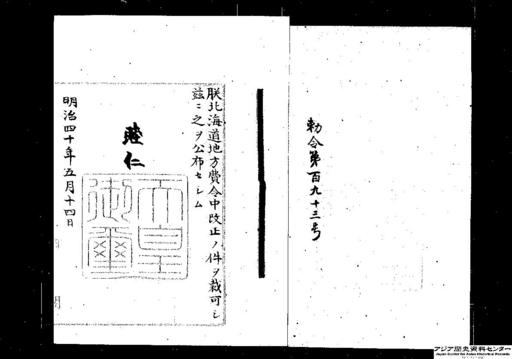 勅令第百九十三号
朕北海道地方費令中改正ノ件ヲ裁可シ
茲ニ之ヲ公布セシム
睦仁
天皇
御璽
明治四十年五月十四日
アジア歴史資料センター
Japan Center for Asian Historical Records